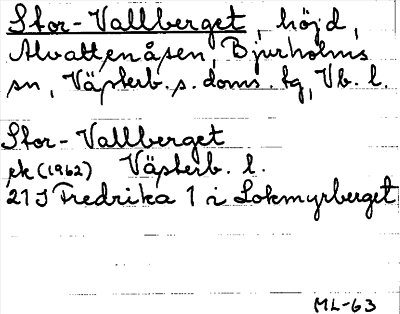 Stor-Vallberget, höjd,
Alvattenåsen, Bjurholms
sn, Västerb. s. doms. tg, Vb. l.
Stor-Vallberget
ek (1962) Västerb. l.
21 J Fredrika 1 i Lokmyrberget
ML-63